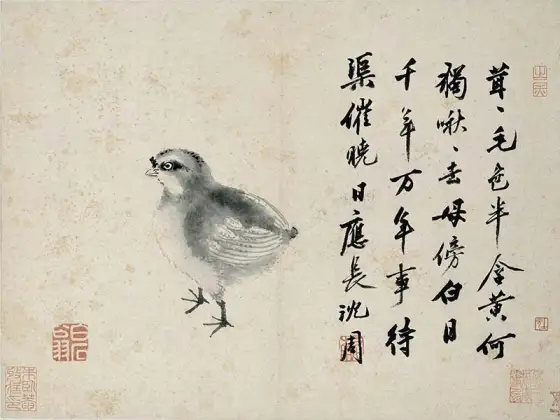 茸〻毛色半含黃何
獨啾〻去母傍白日
千年万年事待
渠催曉日應長沈周
石翁